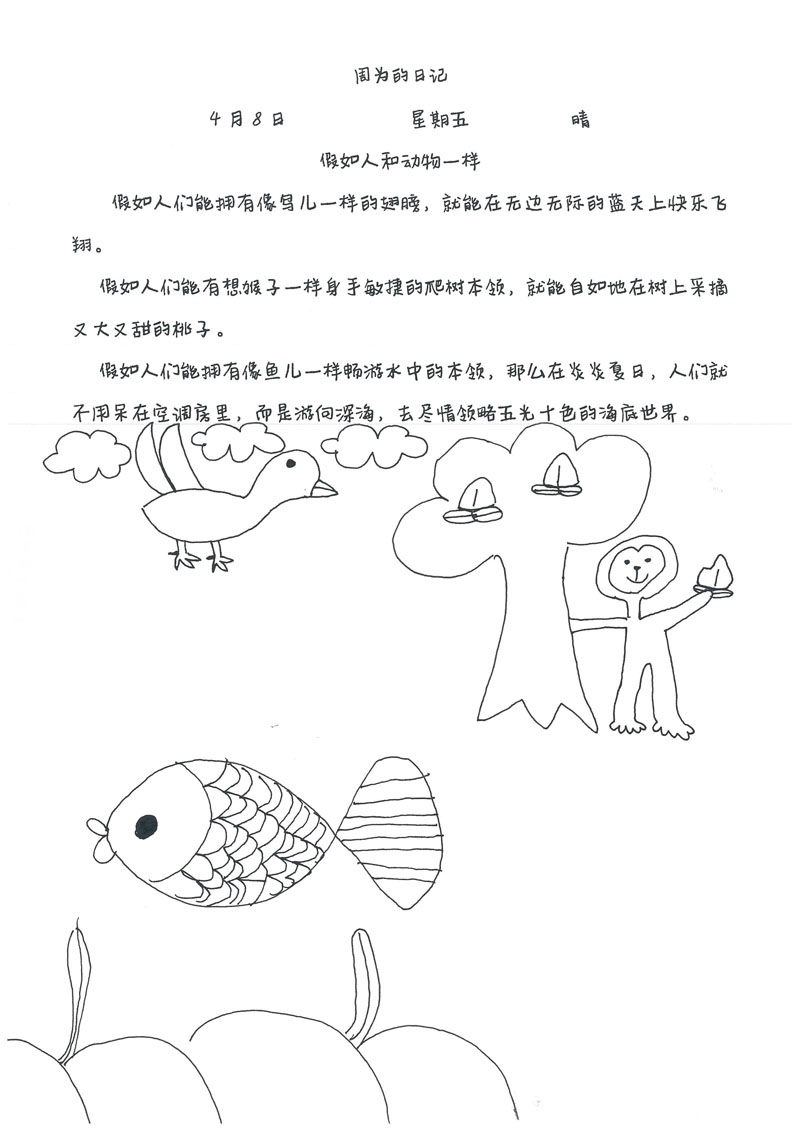 周为的日记
4月8日 星期五 晴
假如人和动物一样
假如人们能拥有像鸟儿一样的翅膀，就能在无边无际的蓝天上快乐飞
翔。
假如人们能有想猴子一样身手敏捷的爬树本领，就能自如地在树上采摘
又大又甜的桃子。
假如人们能拥有像鱼儿一样畅游水中的本领，那么在炎炎夏日，人们就
不用呆在空调房里，而是游向深海，去尽情领略五光十色的海底世界。